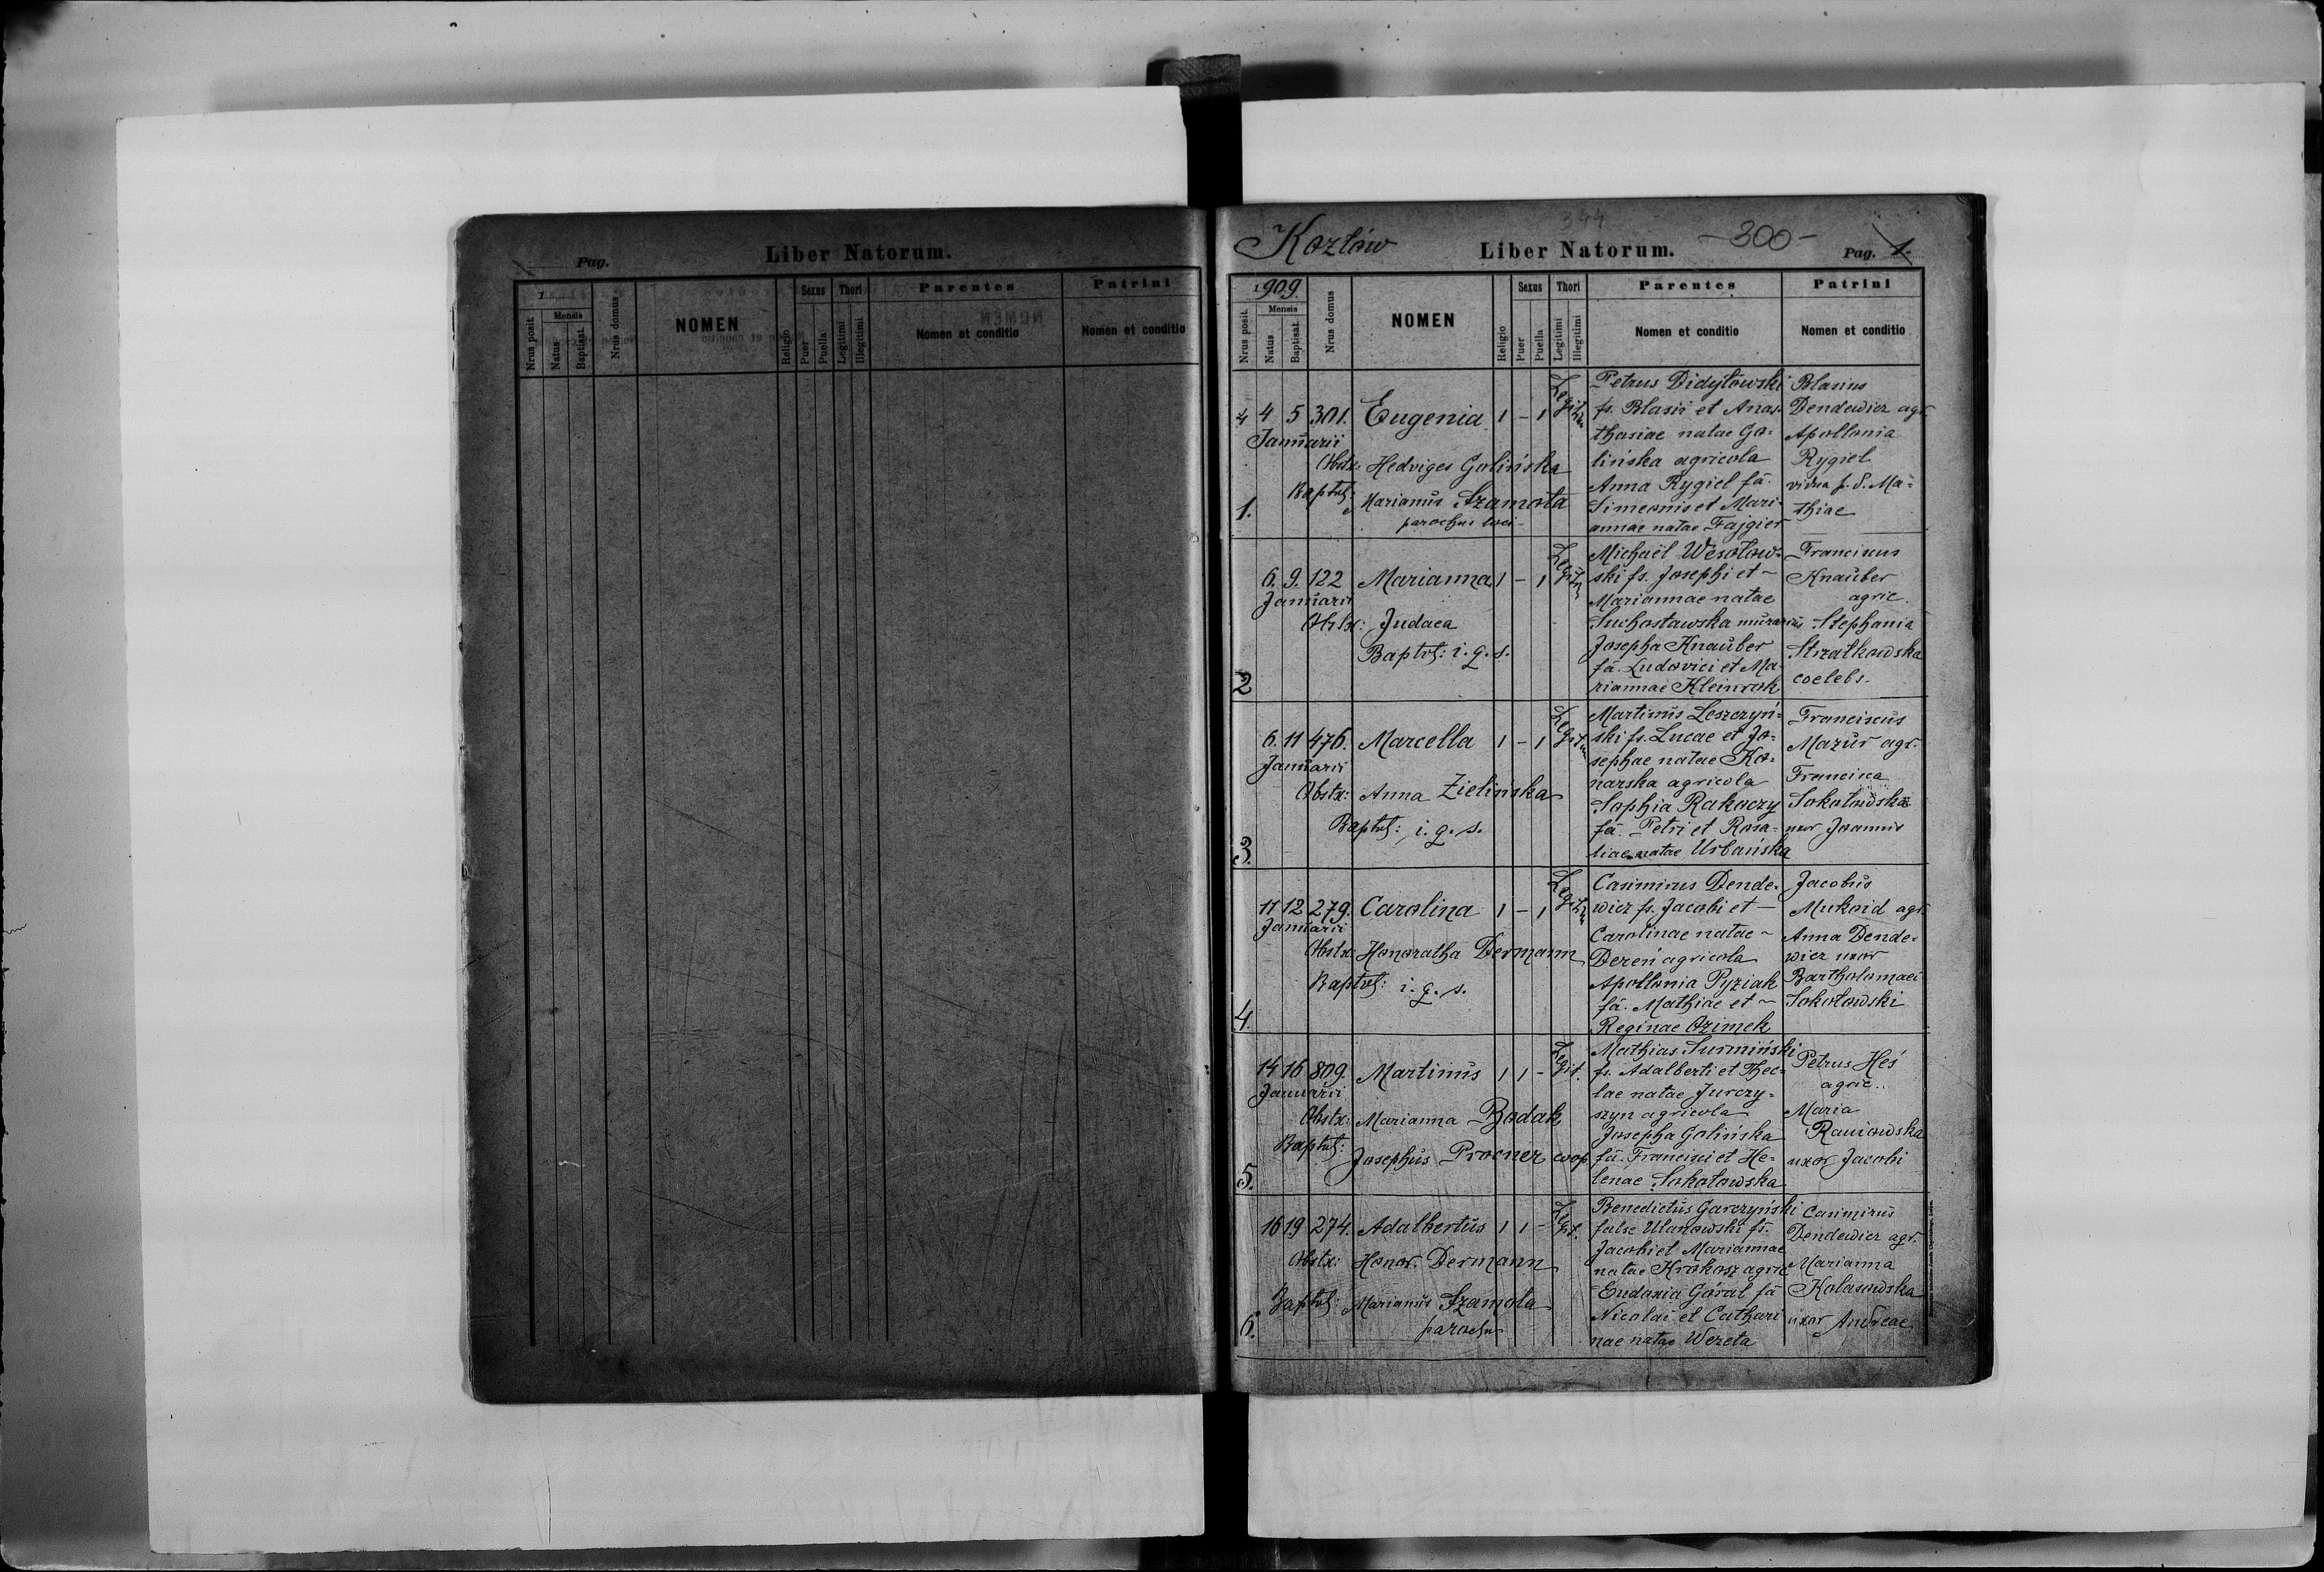 Pag.
Liber Natorum.
Nrus posit.
Mensis
Natus
Baptisat.
Nrus domus
NOMEN
Religio
Sexus
Puer
Puella
Thori
Legitimi
Illegitimi
Parentes
Nomen et conditio
Patrini
Nomen et conditio
Kozłów
344
Liber Natorum.
-300-
Pag. 1.
1909.
Nrus posit.
Mensis
Natus
Baptisat.
Nrus domus
NOMEN
Religio
Sexus
Puer
Puella
Thori
Legitimi
Illegitimi
Parentes
Nomen et conditio
Patrini
Nomen et conditio
1.
4 4 5 301. Eugenia 1 - 1
Januarii
Obstx: Hedviges Golińska
Baptsl: Marianus Szamota
parochus loci
Petrus Didyłowski
fs. Blasii et Anas-
thasiae natae Go-
lińska agricola
Anna Rygiel fa.
Simeonis et Mari-
annae natae Fajgier
Blasius
Dendewicz agr.
Apollonia
Rygiel
vidua p. d. Ma-
thiae
2
6. 9. 122 Marianna 1 - 1
Januarii
Obstx: Judaea
Baptsl: i. q. s.
Michaël Wesołow-
ski fs. Josephi et ~
Mariannae natae
Suchostawska murarius
Josepha Knauber
fa. Ludovici et Ma-
riannae Kleinrok
Franciscus
Knauber
agric.
Stephania
Strzałkowska
coelebs.
3.
6. 11 476. Marcella 1 - 1
Januarii
Obstx: Anna Zielińska
Baptsl: i. q. s.
Martinus Leszczyń-
ski fs. Lucae et Jo-
sephae natae Ko-
narska agricola
Sophia Rakoczy
fa. Petri et Rosa-
liae natae Urbańska
Franciscus
Mazur agr.
Francisca
Sokołowska
uxor Joannis
4.
11 12 279. Carolina 1 - 1
Januarii
Obstx: Honoratha Dermann
Baptsl: i. q. s.
Casimirus Dende-
wicz fs. Jacobi et -
Carolinae natae ~
Dereń agricola
Apollonia Pyziak
fa. Mathiae et ~
Reginae Ozimek
Jacobus
Mukoid agr.
Anna Dende-
wicz uxor
Bartholomaei
Sokołowski
5.
14 16 809. Martinus 1 1 - Legit.
Januarii
Obstx: Marianna Bodak
Baptsl: Josephus Procner coop.
Mathias Surmiński
fs. Adalberti et Thec-
lae natae Jurczy-
szyn agricola
Josepha Golińska
fa. Francisci et He-
lenae Sokołowska
Petrus Heś
agric.
Maria
Raniowska
uxor Jacobi
6.
16 19 274. Adalbertus 1 1 - Legit.
Obstx: Honor. Dermann
Baptsl: Marianus Szamota
parochus
Benedictus Garczyński
false Ulanowski fs.
Jacobi et Mariannae
natae Krokosz agric
Eudoxia Góral fa
Nicolai et Cathari
nae natae Wereta
Casimirus
Dendewicz agr.
Marianna
Kolasowska
uxor Andreae